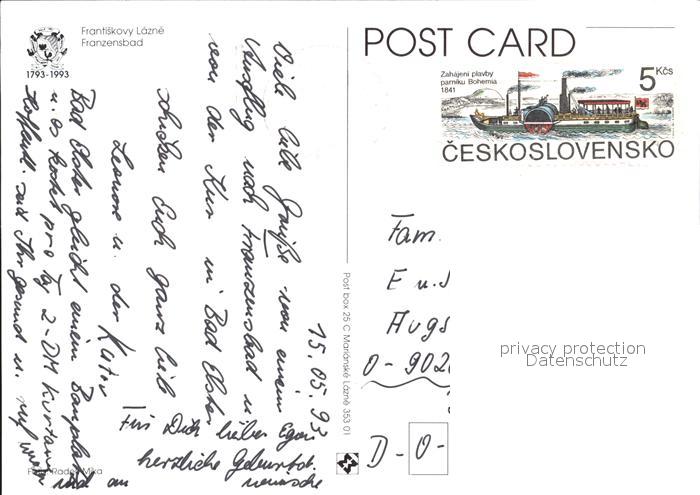 Františkovy Lázně
Franzensbad
1793-1993
POST CARD
Zahájení plavby
parníku Bohemia
1841
5 Kčs
ČESKOSLOVENSKO
15.05.93
Viele liebe Grüße von einem
Ausflug nach Franzensbad u.
von der Kur in Bad Elster
schicken Euch ganz liebe
Leonore u. der
Bad Elster gleicht einem Bauplatz
u. es kostet pro Tag 2,- DM Kurtaxe
Hoffentl. seid Ihr gesund u.
Für Dich lieber Egon
herzliche Geburtst.
wünsche
Fam.
E u.
Augs
O-902
D-O-
privacy protection
Datenschutz
Post box 25 C Mariánské Lázně 353 01
Foto: Radek Mika